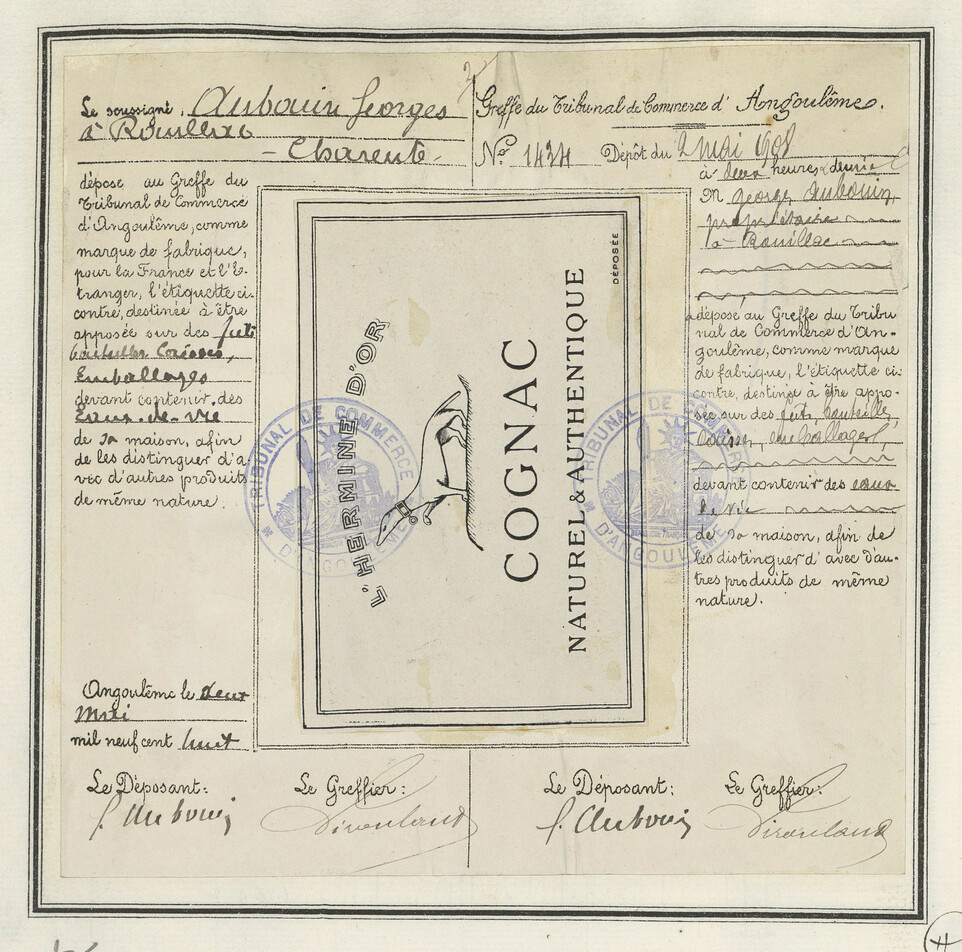 Le soussigné, Aubouin Georges
à Rouillac
- Charente -
dépose au Greffe du
Tribunal de Commerce
d'Angoulême, comme
marque de fabrique,
pour la France et l'É-
tranger, l'étiquette ci-
contre, destinée à être
apposée sur des futs
bouteilles Caisses,
Emballages
devant contenir des
Eaux-de-vie
de sa maison, afin
de les distinguer d'a-
vec d'autres produits
de même nature.
Angoulême le deux
Mai
mil neuf cent huit
Le Déposant:
Le Greffier:
G. Aubouin
L'HERMINE D'OR
COGNAC
NATUREL & AUTHENTIQUE
DÉPOSÉE
TRIBUNAL DE COMMERCE
D'ANGOULÊME
TRIBUNAL DE COMMERCE
D'ANGOULÊME
Greffe du Tribunal de Commerce d'Angoulême.
No 1434 Dépôt du 2 mai 1908
à deux heures & demie
M. George Aubouin,
propriétaire
à Rouillac
dépose au Greffe du Tribu
nal de Commerce d'An-
goulême, comme marque
de fabrique, l'étiquette ci-
contre, destinée à être appo-
sée sur des fûts, bouteille,
caisses, emballages,
devant contenir des eaux
de vie
de sa maison, afin de
les distinguer d'avec d'au-
tres produits de même
nature.
Le Déposant:
Le Greffier:
G. Aubouin